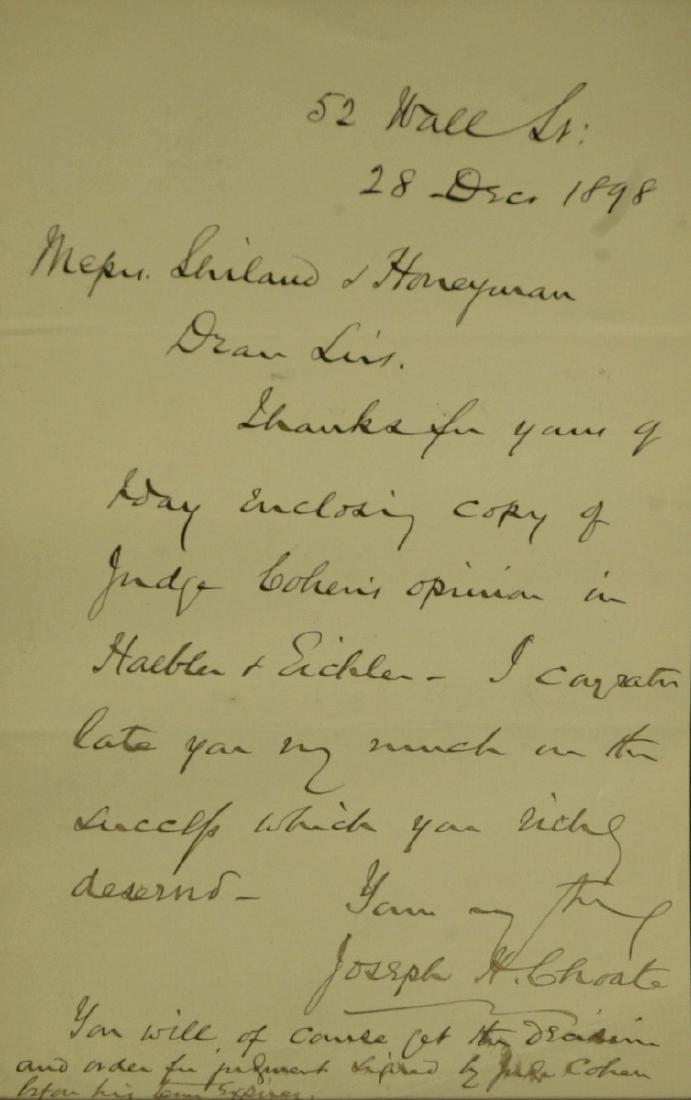 52 Wall St:
28 Dec. 1898
Messrs. Shiland & Honeyman
Dear Sirs.
Thanks for yours of
today enclosing copy of
Judge Cohen's opinion in
Haebler & Eichler - I congratu
late you very much on the
success which you richly
deserved -
Yours very truly
Joseph H. Choate
You will, of course get the decision
and order for judgment signed by Judge Cohen
before his term expires.